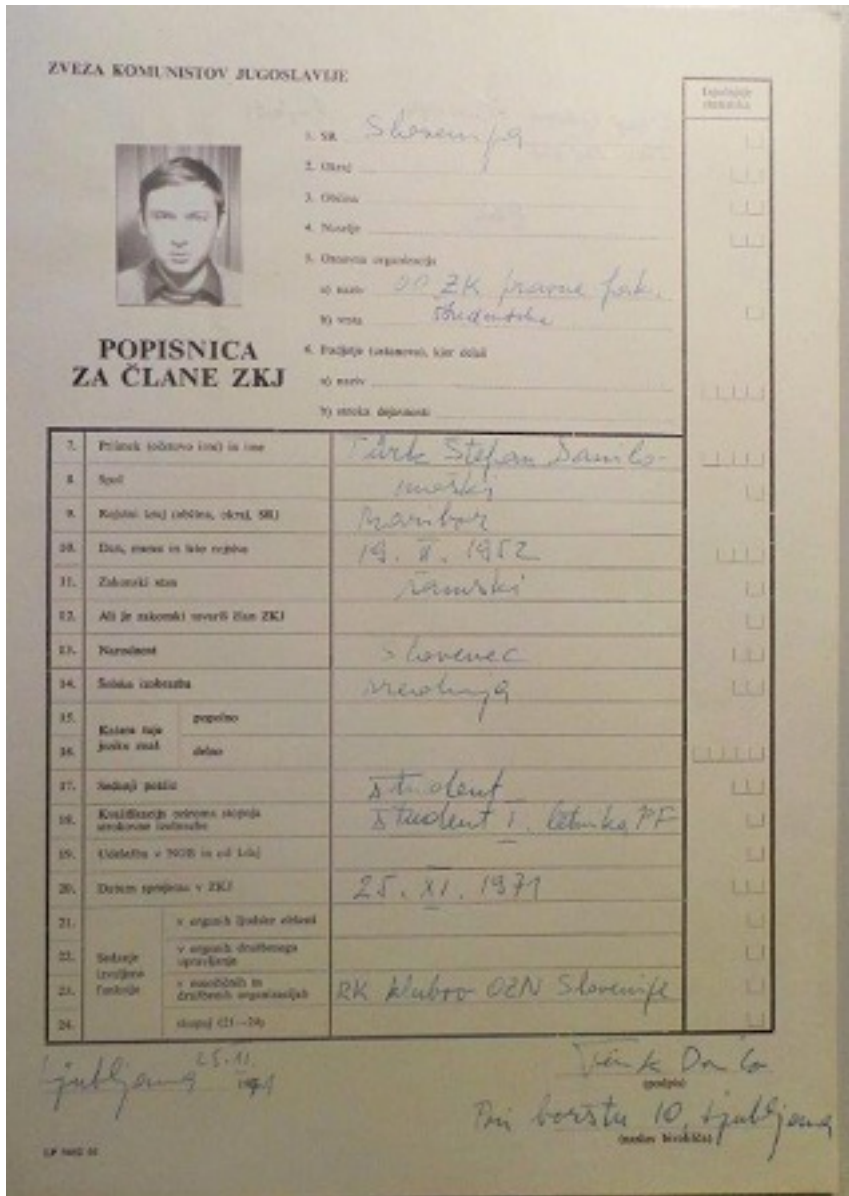 ZVEZA KOMUNISTOV JUGOSLAVIJE
Izpolnjuje
statistika
1. SR Slovenija
2. Okraj
3. Občina
4. Naselje
5. Osnovna organizacija
a) naziv OO ZK pravne fak.
b) vrsta študentska
6. Podjetje (ustanova), kjer delaš
a) naziv
b) stroka dejavnosti
POPISNICA
ZA ČLANE ZKJ
7. Priimek (očetovo ime) in ime Türk Štefan Danilo
8. Spol moški
9. Rojstni kraj (občina, okraj, SR) Maribor
10. Dan, mesec in leto rojstva 19. II. 1952
11. Zakonski stan samski
12. Ali je zakonski tovariš član ZKJ
13. Narodnost Slovenec
14. Šolska izobrazba srednja
15. Katere tuje jezike znaš popolno
16. delno
17. Sedanji poklic študent
18. Kvalifikacija oziroma stopnja strokovne izobrazbe študent I. letnika PF
19. Udeležba v NOB in od kdaj
20. Datum sprejema v ZKJ 25. XI. 1971
21. v organih ljudske oblasti
22. Sedanje izvoljene funkcije v organih družbenega upravljanja
23. v množičnih in družbenih organizacijah RK klubov OZN Slovenije
24. skupaj (21–24)
Ljubljana 25.11. 1971
Türk Danilo
(podpis)
Pri borštu 10, Ljubljana
(naslov bivališča)